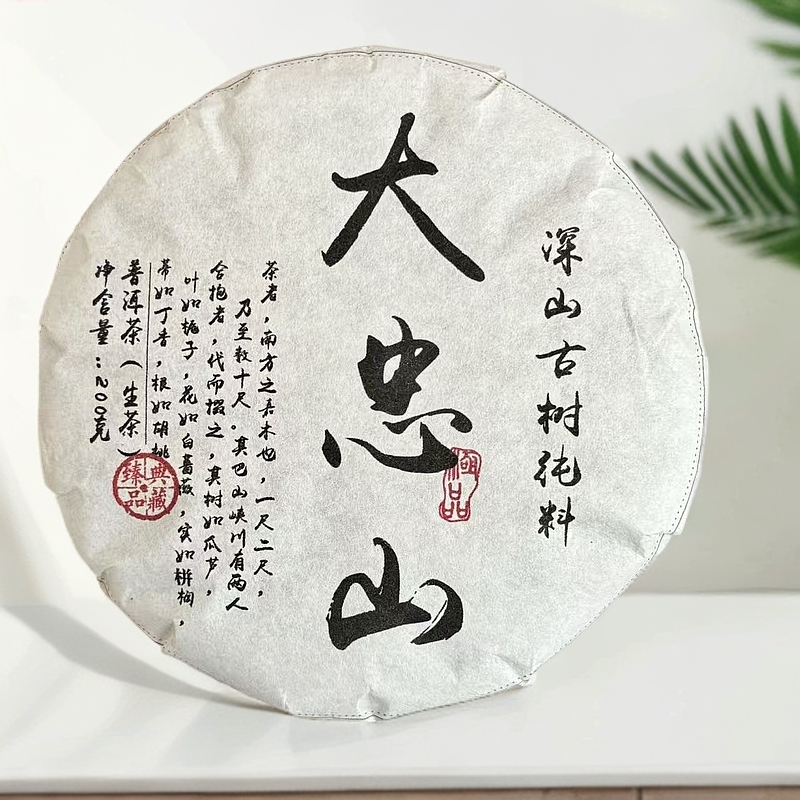 深山古树纯料
大忠山
極品
茶者，南方之嘉木也，一尺二尺，
乃至数十尺。其巴山峡川有两人
合抱者，伐而掇之，其树如瓜芦，
叶如栀子，花如白蔷薇，实如栟榈，
蒂如丁香，根如胡桃
普洱茶（生茶）
净含量：200克
典藏
臻品